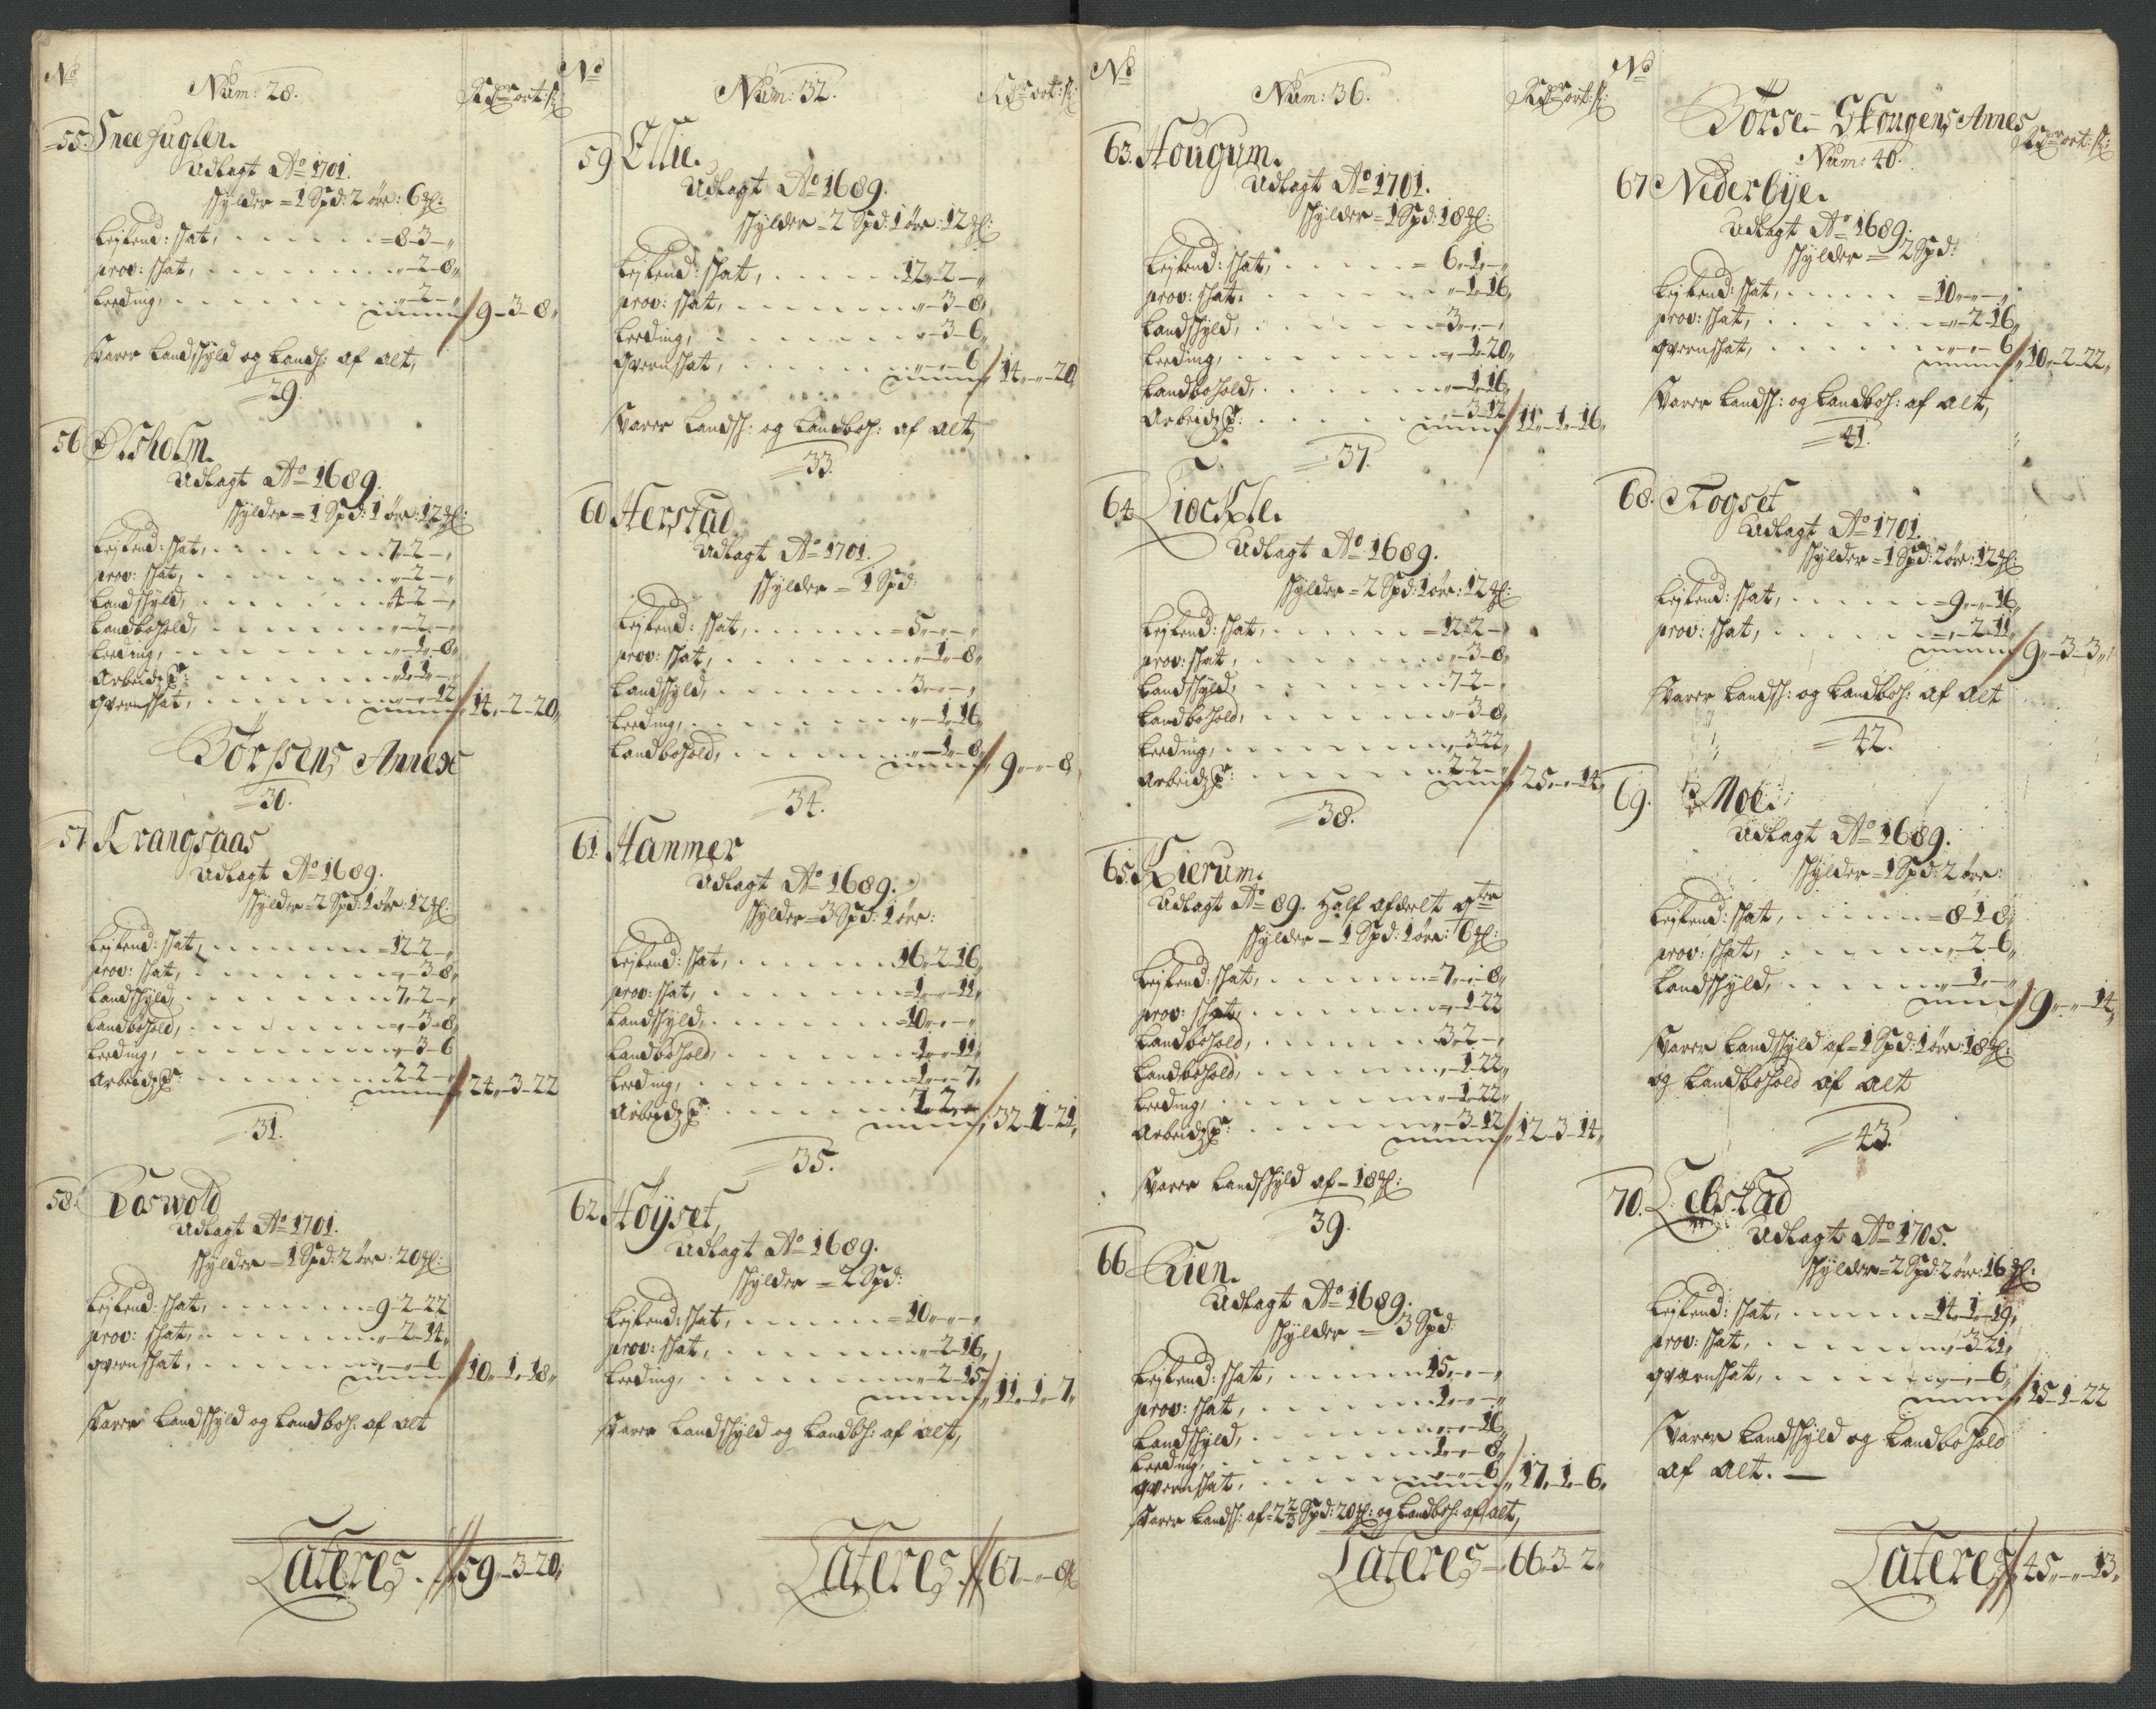 No
Num: 28.
Rdr ort: s:
55. Sneefuglen.
Udlagt Ao 1701.
skylder = 1 Spd: 2 öre: 6 #l:
Leylend: skat, = 8-3-"
prov: skat, "-2-8"
Leeding, "-2-"
9-3-8"
svarer Landskyld og Landb: af alt,
29.
56 Ølsholm.
Udlagt Ao 1689.
skylder = 1 Spd: 1 öre: 12 #l:
Leylend: skat, 7-2-"
prov: skat, "-2-"
Landskyld, 4-2-"
Landbohold, "-2-"
Leeding, "-1-8"
Arbeidzp: "1-1-"
qvernskat, "-"-12
14-2-20"
Börssens Annex
30.
57 Krangsaas
Udlagt Ao 1689.
skylder = 2 Spd: 1 öre: 12 #l:
Leylend: skat, = 12-2-"
prov: skat, "-3-8"
Landskyld, 7-2-"
Landbohold, "-3-8"
Leeding, "-3-6
Arbeidzp: 2-2-"
24-3-22
31.
58. Koswold
Udlagt Ao 1701.
skylder = 1 Spd: 2 öre: 20 #l:
Leylend: skat, = 9-2-22
prov: skat, "-2-14"
qvernskat, "-"-6
10-1-18"
svarer Landskyld og Landboh: af alt
Lateres. 59-3-20"
No
Num: 32.
Rdr ort: s:
59 Ellie.
Udlagt Ao 1689.
skylder = 2 Spd: 1 öre: 12 #l:
Leylend: skat, 12-2-"
prov: skat, "-3-8"
Leeding, "-3-6"
qvernskat, "-"-6
14-"-20"
svarer Landsk: og Landboh: af alt,
33.
60 Herstad
Udlagt Ao 1701.
skylder = 1 Spd:
Leylend: skat, = 5-"-"
prov: skat, "-1-8"
Landskyld, 3-"-"
Leeding, "-1-16"
Landbohold, "-1-8"
9-"-8"
34.
61. Hanmer
Udlagt Ao 1689.
skylder = 3 Spd: 1 öre:
Leylend: skat, 16-2-16"
prov: skat, = 1-"-11"
Landskyld, = 10-"-"
Landbohold, 1-"-11"
Leeding, 1-"-7"
Arbeidzp: 1-2-"
32-1-21"
35.
62. Höyset,
Udlagt Ao 1689.
skylder = 2 Spd:
Leylend: skat, = 10-"-"
prov: skat, "-2-16"
Leeding, "-2-15"
11-1-7"
svarer Landskyld og Landbh: af alt,
Lateres. 67-"-8
No
Num: 36.
Rdr ort: s:
63. Hougum.
Udlagt Ao 1701.
skylder = 1 Spd: 18 #l:
Leylend: skat, = 6-1-"
prov: skat, "-1-16"
Landskyld, = 3-"-"
Leeding, "-1-20"
Landbohold, "-1-16"
Arbeidzp: "-3-12
11-1-16"
37.
64 Liøckle.
Udlagt Ao 1689.
skylder = 2 Spd: 1 öre: 12 #l:
Leylend: skat, = 12-2-"
prov: skat, "-3-8"
Landskyld, 7-2-"
Landbohold, "-3-8"
Leeding, "-3-22"
Arbeidzp: 2-2-"
25-"-14"
38.
65. Kierum.
Udlagt Ao 89. Half afdeelt
skylder = 1 Spd: 1 öre: 6 #l:
Leylend: skat, = 7-"-8"
prov: skat, "-1-22
Landbohold, 3-2-"
Landbohold, "-1-22"
Leeding, "-1-22"
Arbeidzp: "-3-12
12-3-14"
svarer Landskyld af = 18 #l:
39.
66 Lien.
Udlagt Ao 1689.
skylder = 3 Spd:
Leylend: skat, 15-"-"
prov: skat, 1-"-"
Landskyld, "-"-16"
Leeding, 1-"-8"
qvernskat, "-"-6"
17-1-6"
svarer Landsk: af = 2 2/3 Spd: 20 #l: og Landboh: af alt,
Lateres = 66-3-2"
No
Börse-Skougens Annes
Rdr ort: s:
Num: 40.
67 Nederbye.
Udlagt Ao 1689.
skylder = 2 Spd:
Leylend: skat, = 10-"-"
prov: skat, "-2-16"
qvernskat, "-"-6
10-2-22"
svarer Landsk: og Landboh: af alt,
41.
68. Rogset
Udlagt Ao 1701.
skylder = 1 Spd: 2 öre: 12 #l:
Leylend: skat, = 9-"-16"
prov: skat, "-2-11"
9-3-3"
svarer Landsk: og Landboh: af alt
42.
69. Moe.
Udlagt Ao 1689.
skylder = 1 Spd: 2 öre:
Leylend: skat, = 8-1-8"
prov: skat, "-2-6"
Landskyld, "-1-"
9-"-14"
svarer Landskyld af = 1 Spd: 1 öre: 18 #l:
og Landbohold af alt
43.
70. Lebstad
Udlagt Ao 1705.
skylder = 2 Spd: 2 öre: 16 #l:
Leylend: skat, = 14-1-19"
prov: skat, "-3-21"
qvernskat, "-"-6"
15-1-22
svarer Landskyld og Landbohold
af alt.
Lateres 45-"-13"